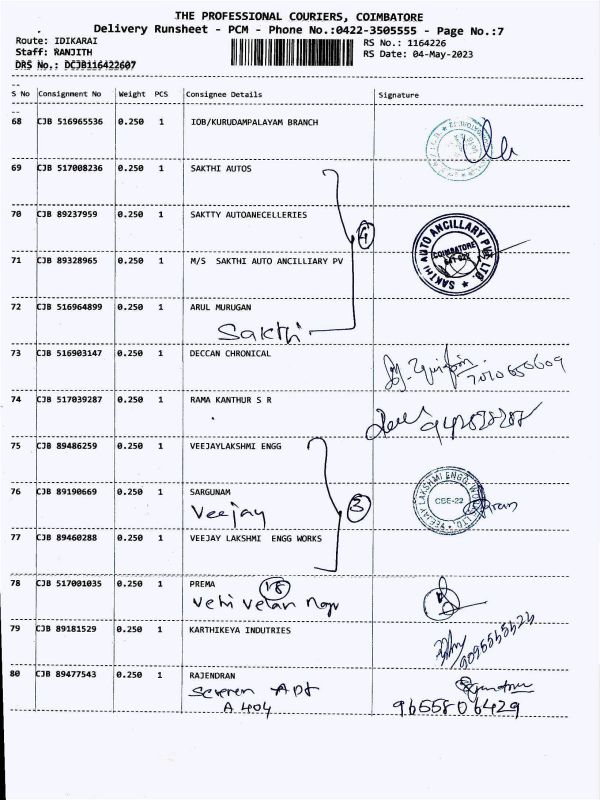 THE PROFESSIONAL COURIERS, COIMBATORE
Delivery Runsheet - PCM - Phone No.:0422-3505555 - Page No.:7
Route: IDIKARAI
RS No.: 1164226
Staff: RANJITH
RS Date: 04-May-2023
DRS No.: DCJB116422607
S No Consignment No Weight PCS Consignee Details Signature
68 CJB 516965536 0.250 1 IOB/KURUDAMPALAYAM BRANCH
69 CJB 517008236 0.250 1 SAKTHI AUTOS
70 CJB 89237959 0.250 1 SAKTTY AUTOANECELLERIES
4
71 CJB 89328965 0.250 1 M/S SAKTHI AUTO ANCILLIARY PV
SAKTHI AUTO ANCILLARY PVT. LTD.
COIMBATORE
72 CJB 516964899 0.250 1 ARUL MURUGAN
Sakthi
73 CJB 516903147 0.250 1 DECCAN CHRONICAL
7010650609
74 CJB 517039287 0.250 1 RAMA KANTHUR S R
75 CJB 89486259 0.250 1 VEEJAYLAKSHMI ENGG
76 CJB 89190669 0.250 1 SARGUNAM
Veejay
3
VEEJAY LAKSHMI ENGG. WORKS LTD.
CBE-22
77 CJB 89460288 0.250 1 VEEJAY LAKSHMI ENGG WORKS
78 CJB 517001035 0.250 1 PREMA
18
79 CJB 89181529 0.250 1 KARTHIKEYA INDUTRIES
80 CJB 89477543 0.250 1 RAJENDRAN
A 404
9655806429